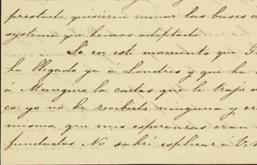 presterle, quisieron minar las bases del
systema que hemos adoptado
Se en este momento que G.
ha llegado ya á Londres y que ha
á Manguro la cartas que le trajo
co yo no he recibido ninguna y cr
mismo, que mis esperanzas eran
fundadas. No sabré esplicar á G. n